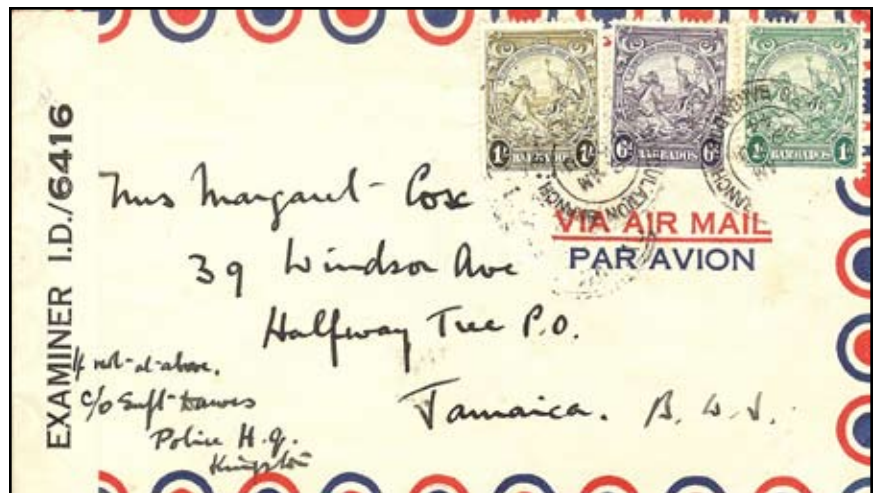 EXAMINER I.D./6416
1/- BARBADOS 1/-
6d BARBADOS 6d
1d BARBADOS 1d
VIA AIR MAIL
PAR AVION
Mrs Margaret Cox
39 Windsor Ave
Halfway Tree P.O.
Jamaica. B. W. I.
If not at above.
c/o Supt Dawes
Police H.Q.
Kingston